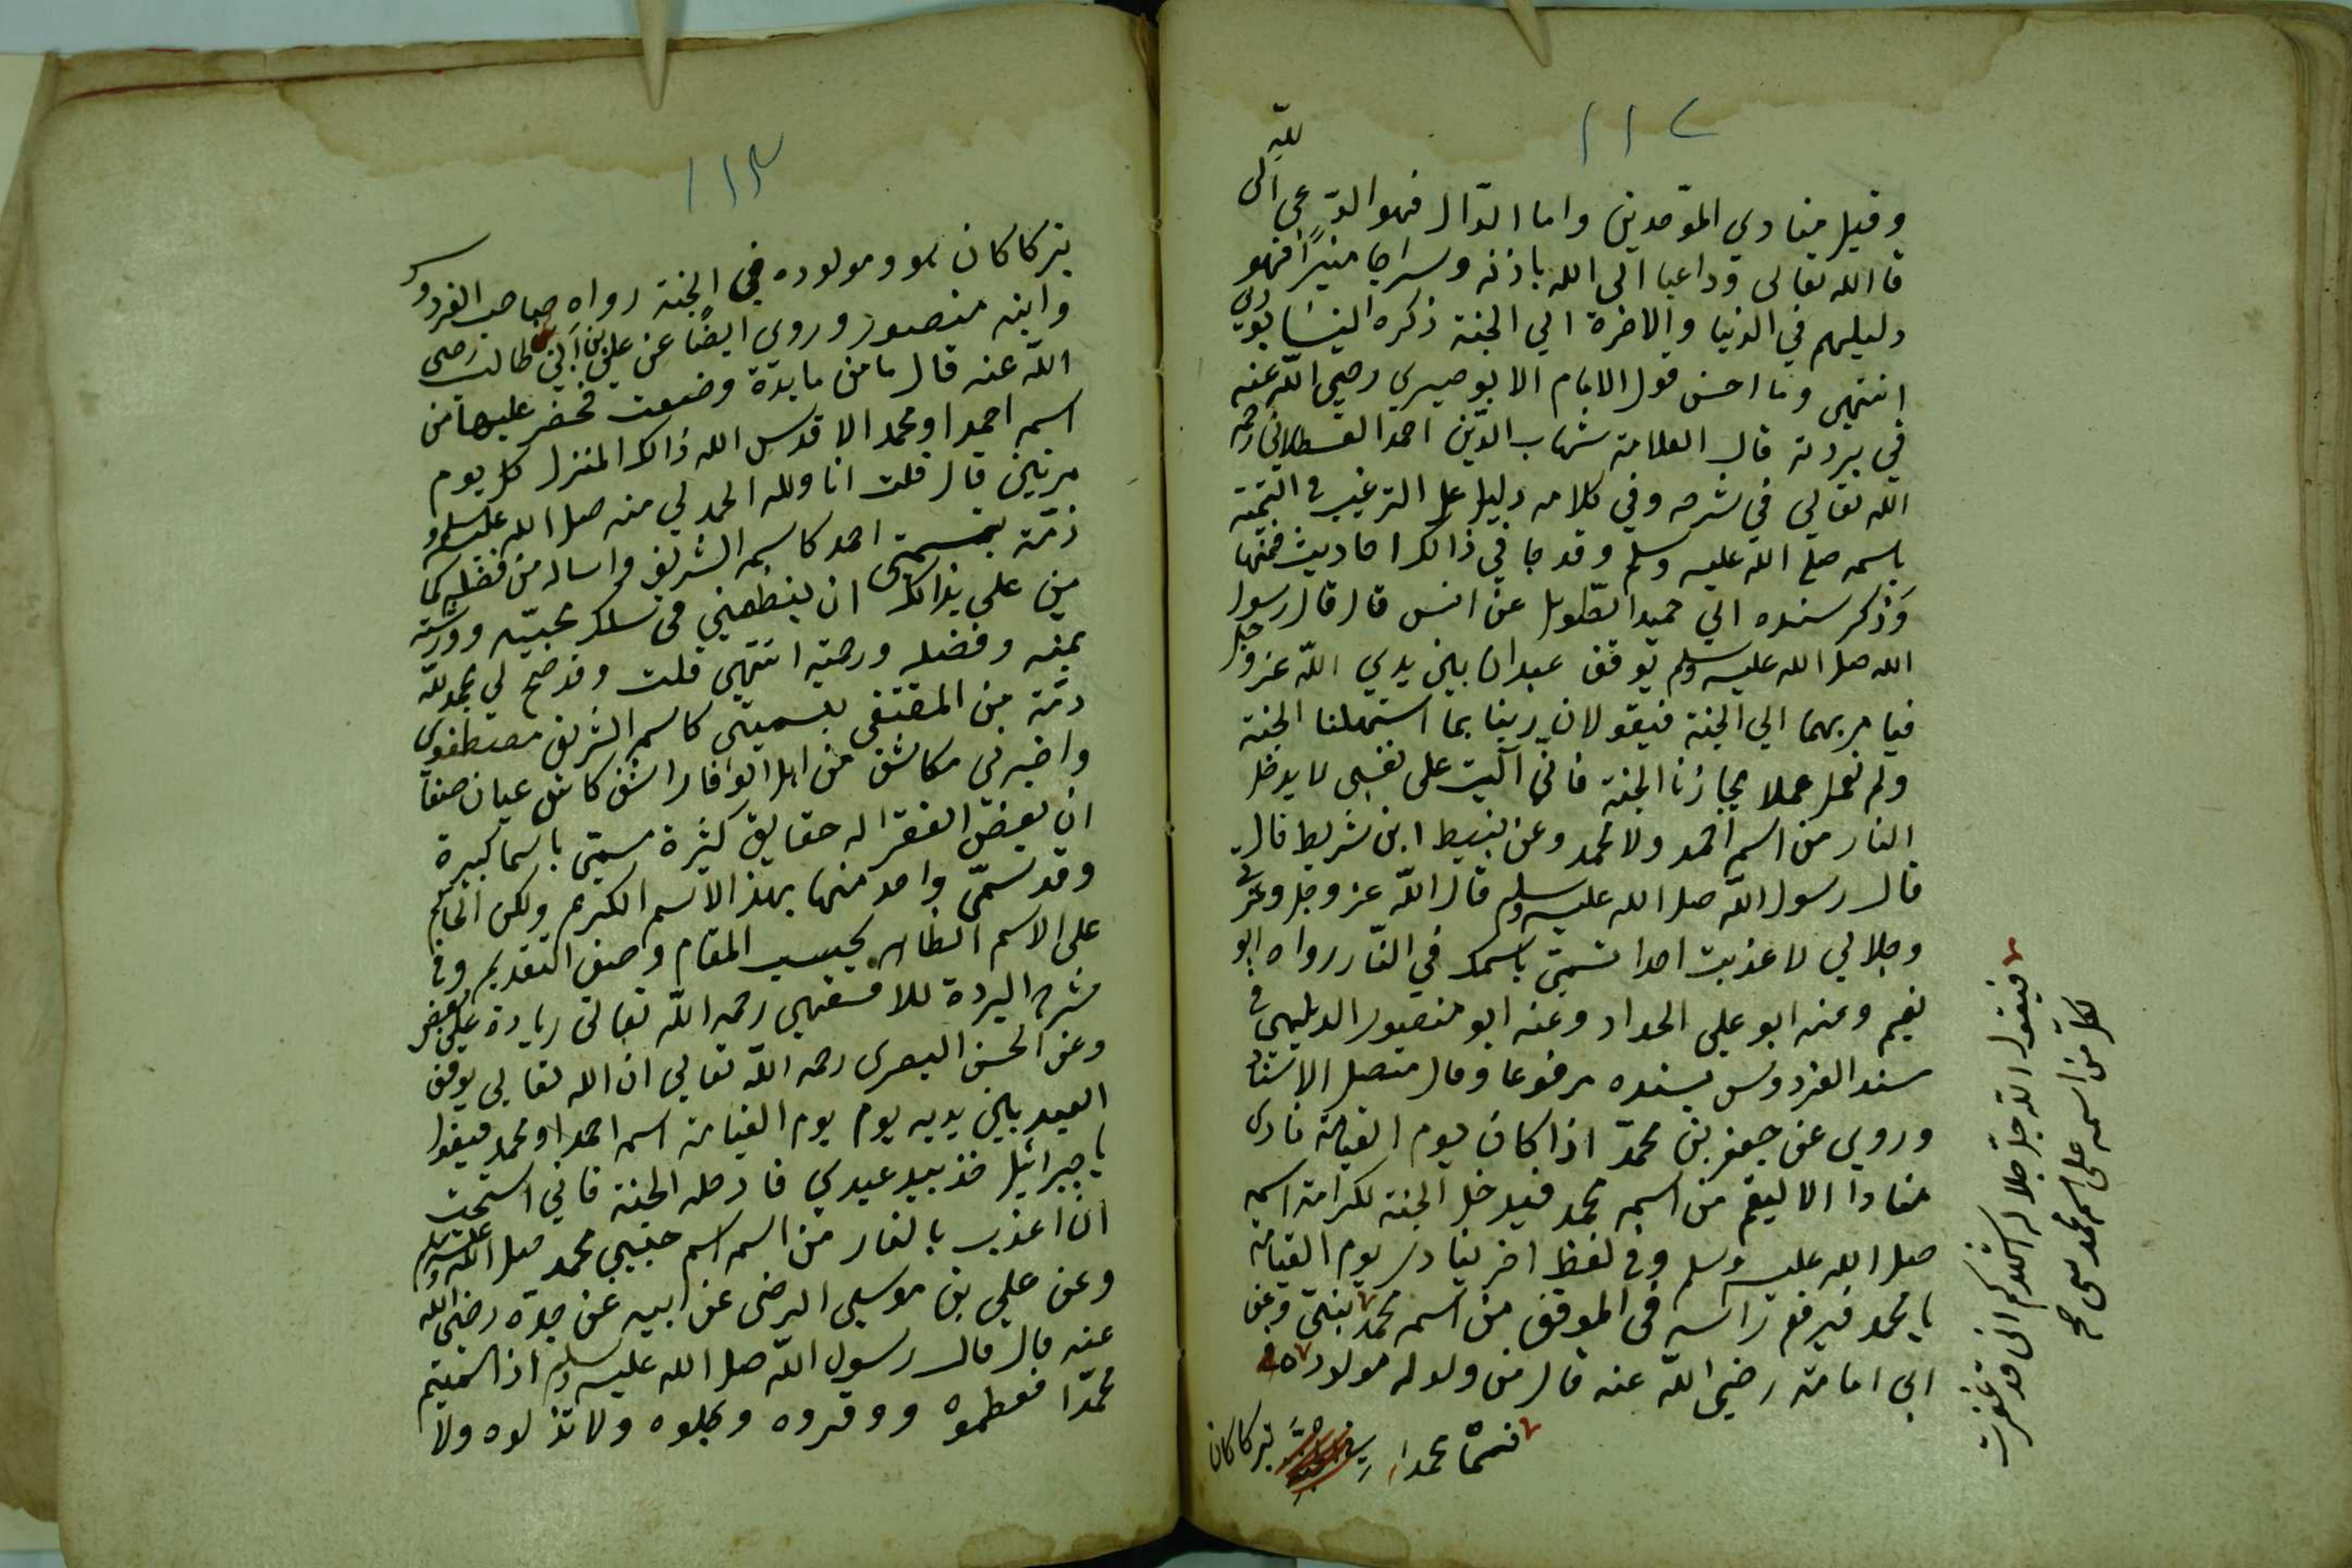 ١١٢
وقيل منادي الموّحدين واما الدّال فهو الدّعي الى للّه
قا الله تعالى وداعيا الى الله باذنه وسراجا منيرًا فهو
دليلهم في الدنيا والاخرة الي الجنة ذكره النيسابوري
انتهى وما احسن قول الامام الابوصيري رضي اللّه عنه
في بردته قال العلامة شهاب الدّين احمد القسطلاني رحمه
اللّه تعالي في شرحه وفي كلامه دليل على الترغيب في التسمية
باسمه صلي اللّه عليه وسلم وقد جا في ذالك احاديث فمنها
وَذكر سنده الي حميد الطّويل عن انس قال قال رسول
الله صلى الله عليه وسلم توقف عبدان بين يدي اللّه عز وجل
فيامر بهما الي الجنة فيقولان ربنا بما استهلنا الجنة
ولم نعمل عملا يجازنا الجنة فاني آليت على نفسي لا يدخل
النار من اسمه أحمد ولا محمد وعن نبيط ابن شريط قال
قال رسول اللّه صلى الله عليه وسلم قال اللّه عز وجل وعزتي
وجلالي لا عذبت احدا تسمى باسمك في النّار رواه ابو
نعيم وعنه ابو علي الحداد وعنه ابو منصور الديلمي في
سند الفردوس بسنده مرفوعا وقال متصل الاسناد
وروي عن جعفر بن محمدّ اذا كان يوم القيامة نادى
منادا الا ليقم من اسمه محمد فيدخل الجنة لكرامة اسمه
صلى الله عليه وسلم وفي لفظ اخر ينادى يوم القيامة
يا محمد فيرفع رأسه في الموقف من اسمه محمد وعن
ابي امامة رضي اللّه عنه قال من ولد له مولود
فسمّاه محمدا
تبركا كان
فيقول اللّه جلّ جلاله اشهدكم انى قد غفرت
لكلّ من اسمه على اسم محمد نبى صح
١١٣
تبركا كان هو ومولوده في الجنة رواه صاحب الفردوس
وابنه منصور وروى ايضًا عن علي بن ابي طالب رضى
اللّه عنه قال ما من مايدة وضعت فحضر عليها من
اسمه احمد او محمد الا قدس الله ذالك المنزل كل يوم
مرتين قال قلت انا ولله الحمد لي منه صلى الله عليه وسلم
ذمّة بتسميتى احمد كاسمه الشريف واساله من فضله كما
من علي بذالك ان ينظمني فى سلك محبيّه وورثته
بمنه وفضله ورحمته انتهي قلت وقد صح لي بحمد للّه
ذمّة من المقتفى بتسميتى كاسمه الشريف مصطفوى
واخبرنى مكاشف من اهل الوفا
ان بعض الفقرا له حقايق كثيرة سمّى باسما كبيرة
وقد تسمّى واحد منها بهذ الاسم الكرم ولكن الحاكم
على الاسم الظاهر بحسب المقام وصف التقديم وفي
شرح البردة للاقفهسي رحمه اللّه تعالى زيادة على بعض
وعن الحسن البصرى رحمه اللّه تعالي ان الله تعالى يوقف
العبد بين يديه يوم يوم القيامة اسمه احمد او محمد فيقول
يا جبرائيل خذ بيد عبدي فادخله الجنة فاني استحيت
ان اعذب بالنار من اسمه اسم حبيبي محمد صلى الله عليه وسلم
وعن علي بن موسى الرضى عن ابيه عن جدّه رضى الله
عنه قال قال رسول اللّه صلى الله عليه وسلم اذا سميتم
محمدّا فعظموه ووقروه وبجلوه ولا تذلوه ولا